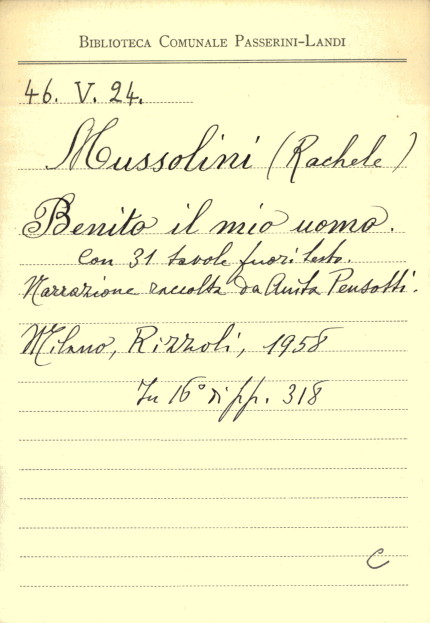 BIBLIOTECA COMUNALE PASSERINI-LANDI
46. V. 24.
Mussolini (Rachele)
Benito il mio uomo.
Con 31 tavole fuori testo.
Narrazione raccolta da Anita Pensotti.
Milano, Rizzoli, 1958
In 16° di pp. 318
C